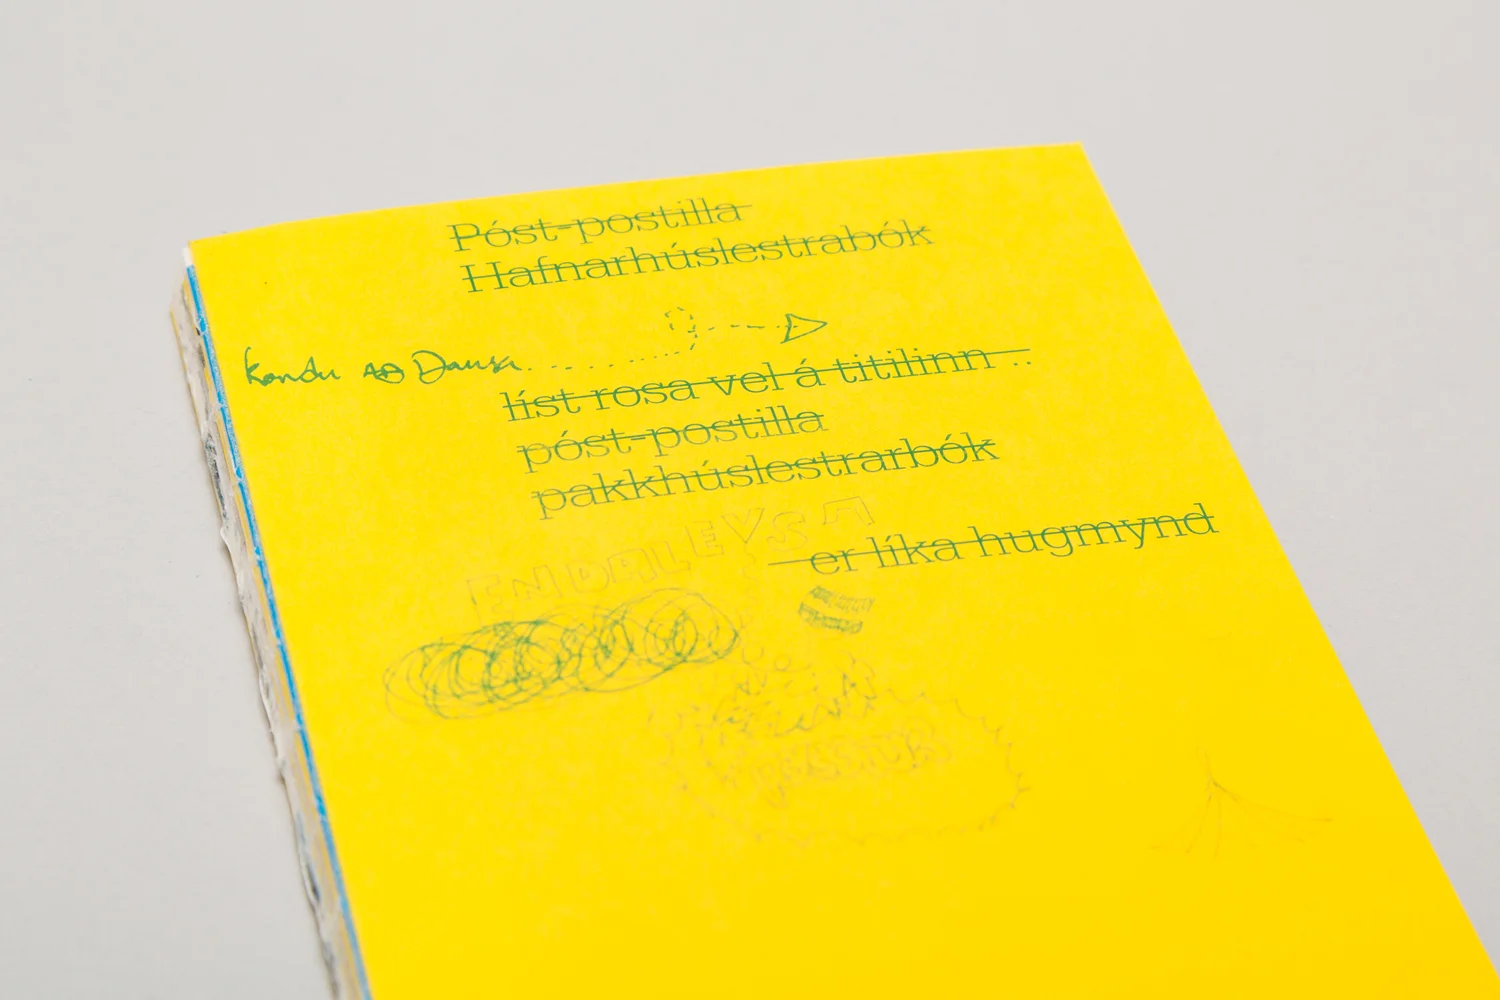 Póst-postilla
Hafnarhúslestrabók
Kondu að Dansa
líst rosa vel á titilinn ..
póst-postilla
pakkhúslestrarbók
er líka hugmynd
ENDALEYSA